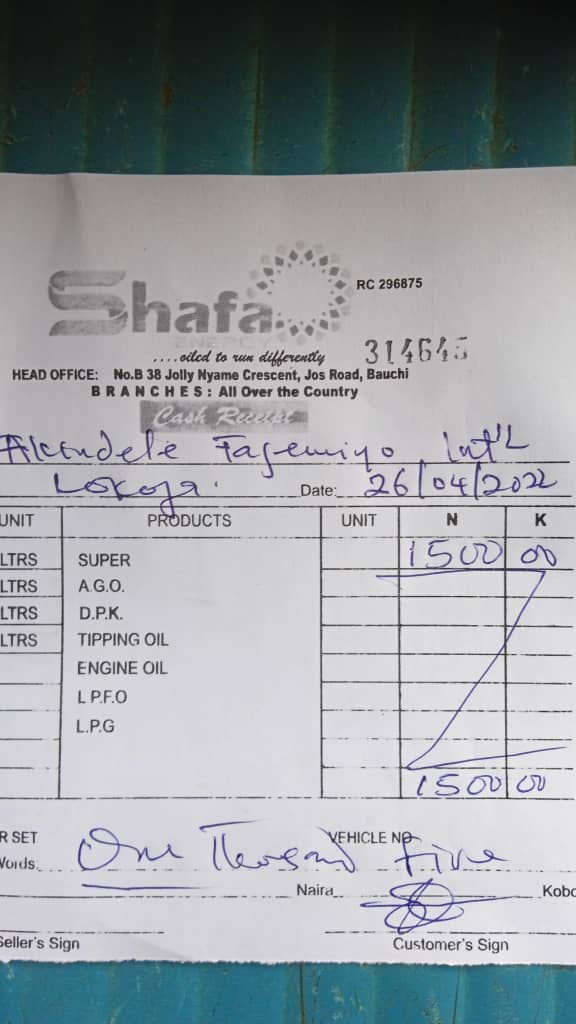 Shafa
ENERGY
RC 296875
....oiled to run differently
314645
HEAD OFFICE: No.B 38 Jolly Nyame Crescent, Jos Road, Bauchi
BRANCHES: All Over the Country
Cash Receipt
Int'L
Lokoja. Date: 26/04/2022
UNIT PRODUCTS UNIT N K
LTRS SUPER 1500 00
LTRS A.G.O.
LTRS D.P.K.
LTRS TIPPING OIL
ENGINE OIL
L P.F.O
L.P.G
1500 00
R SET VEHICLE NO
Words. One Thousand Five
Naira Kobo
Seller's Sign Customer's Sign